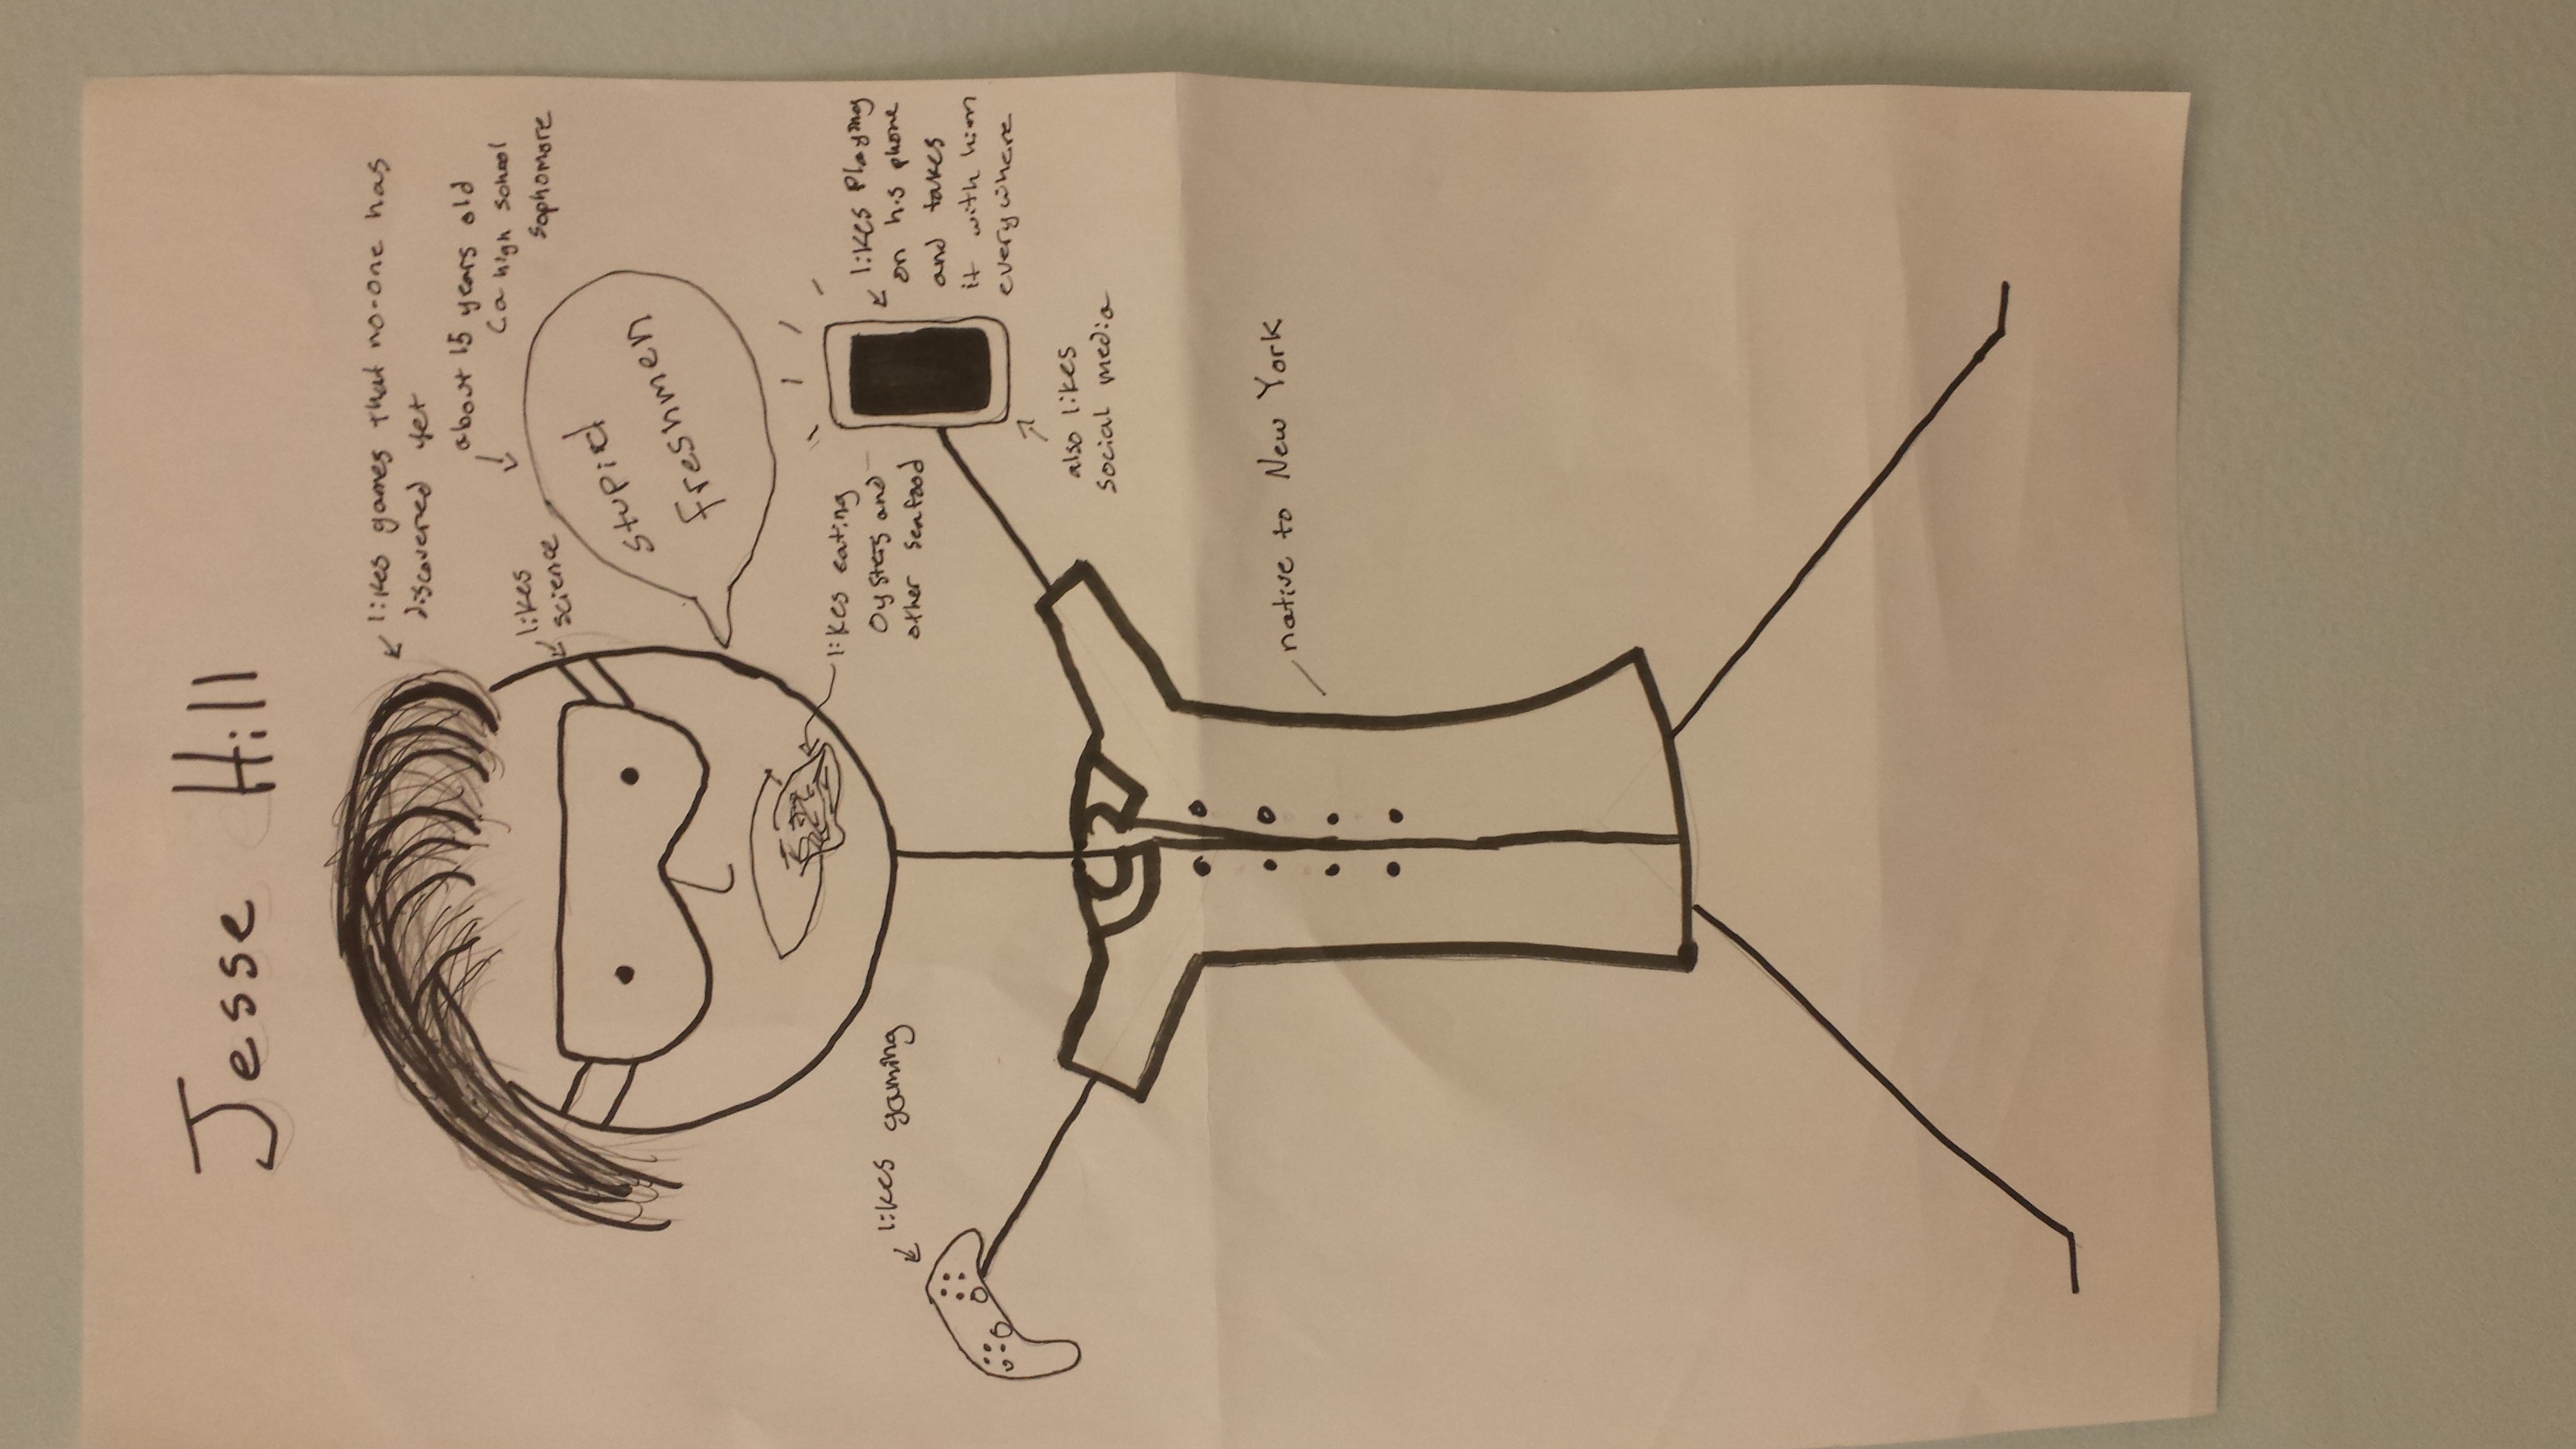 Jesse Hill
likes games that no-one has
discovered yet
about 15 years old
(a high school
sophomore
likes
science
stupid
freshmen
likes eating
oysters and
other seafood
likes Playing
on his phone
and takes
it with him
everywhere
likes gaming
also likes
social media
native to New York